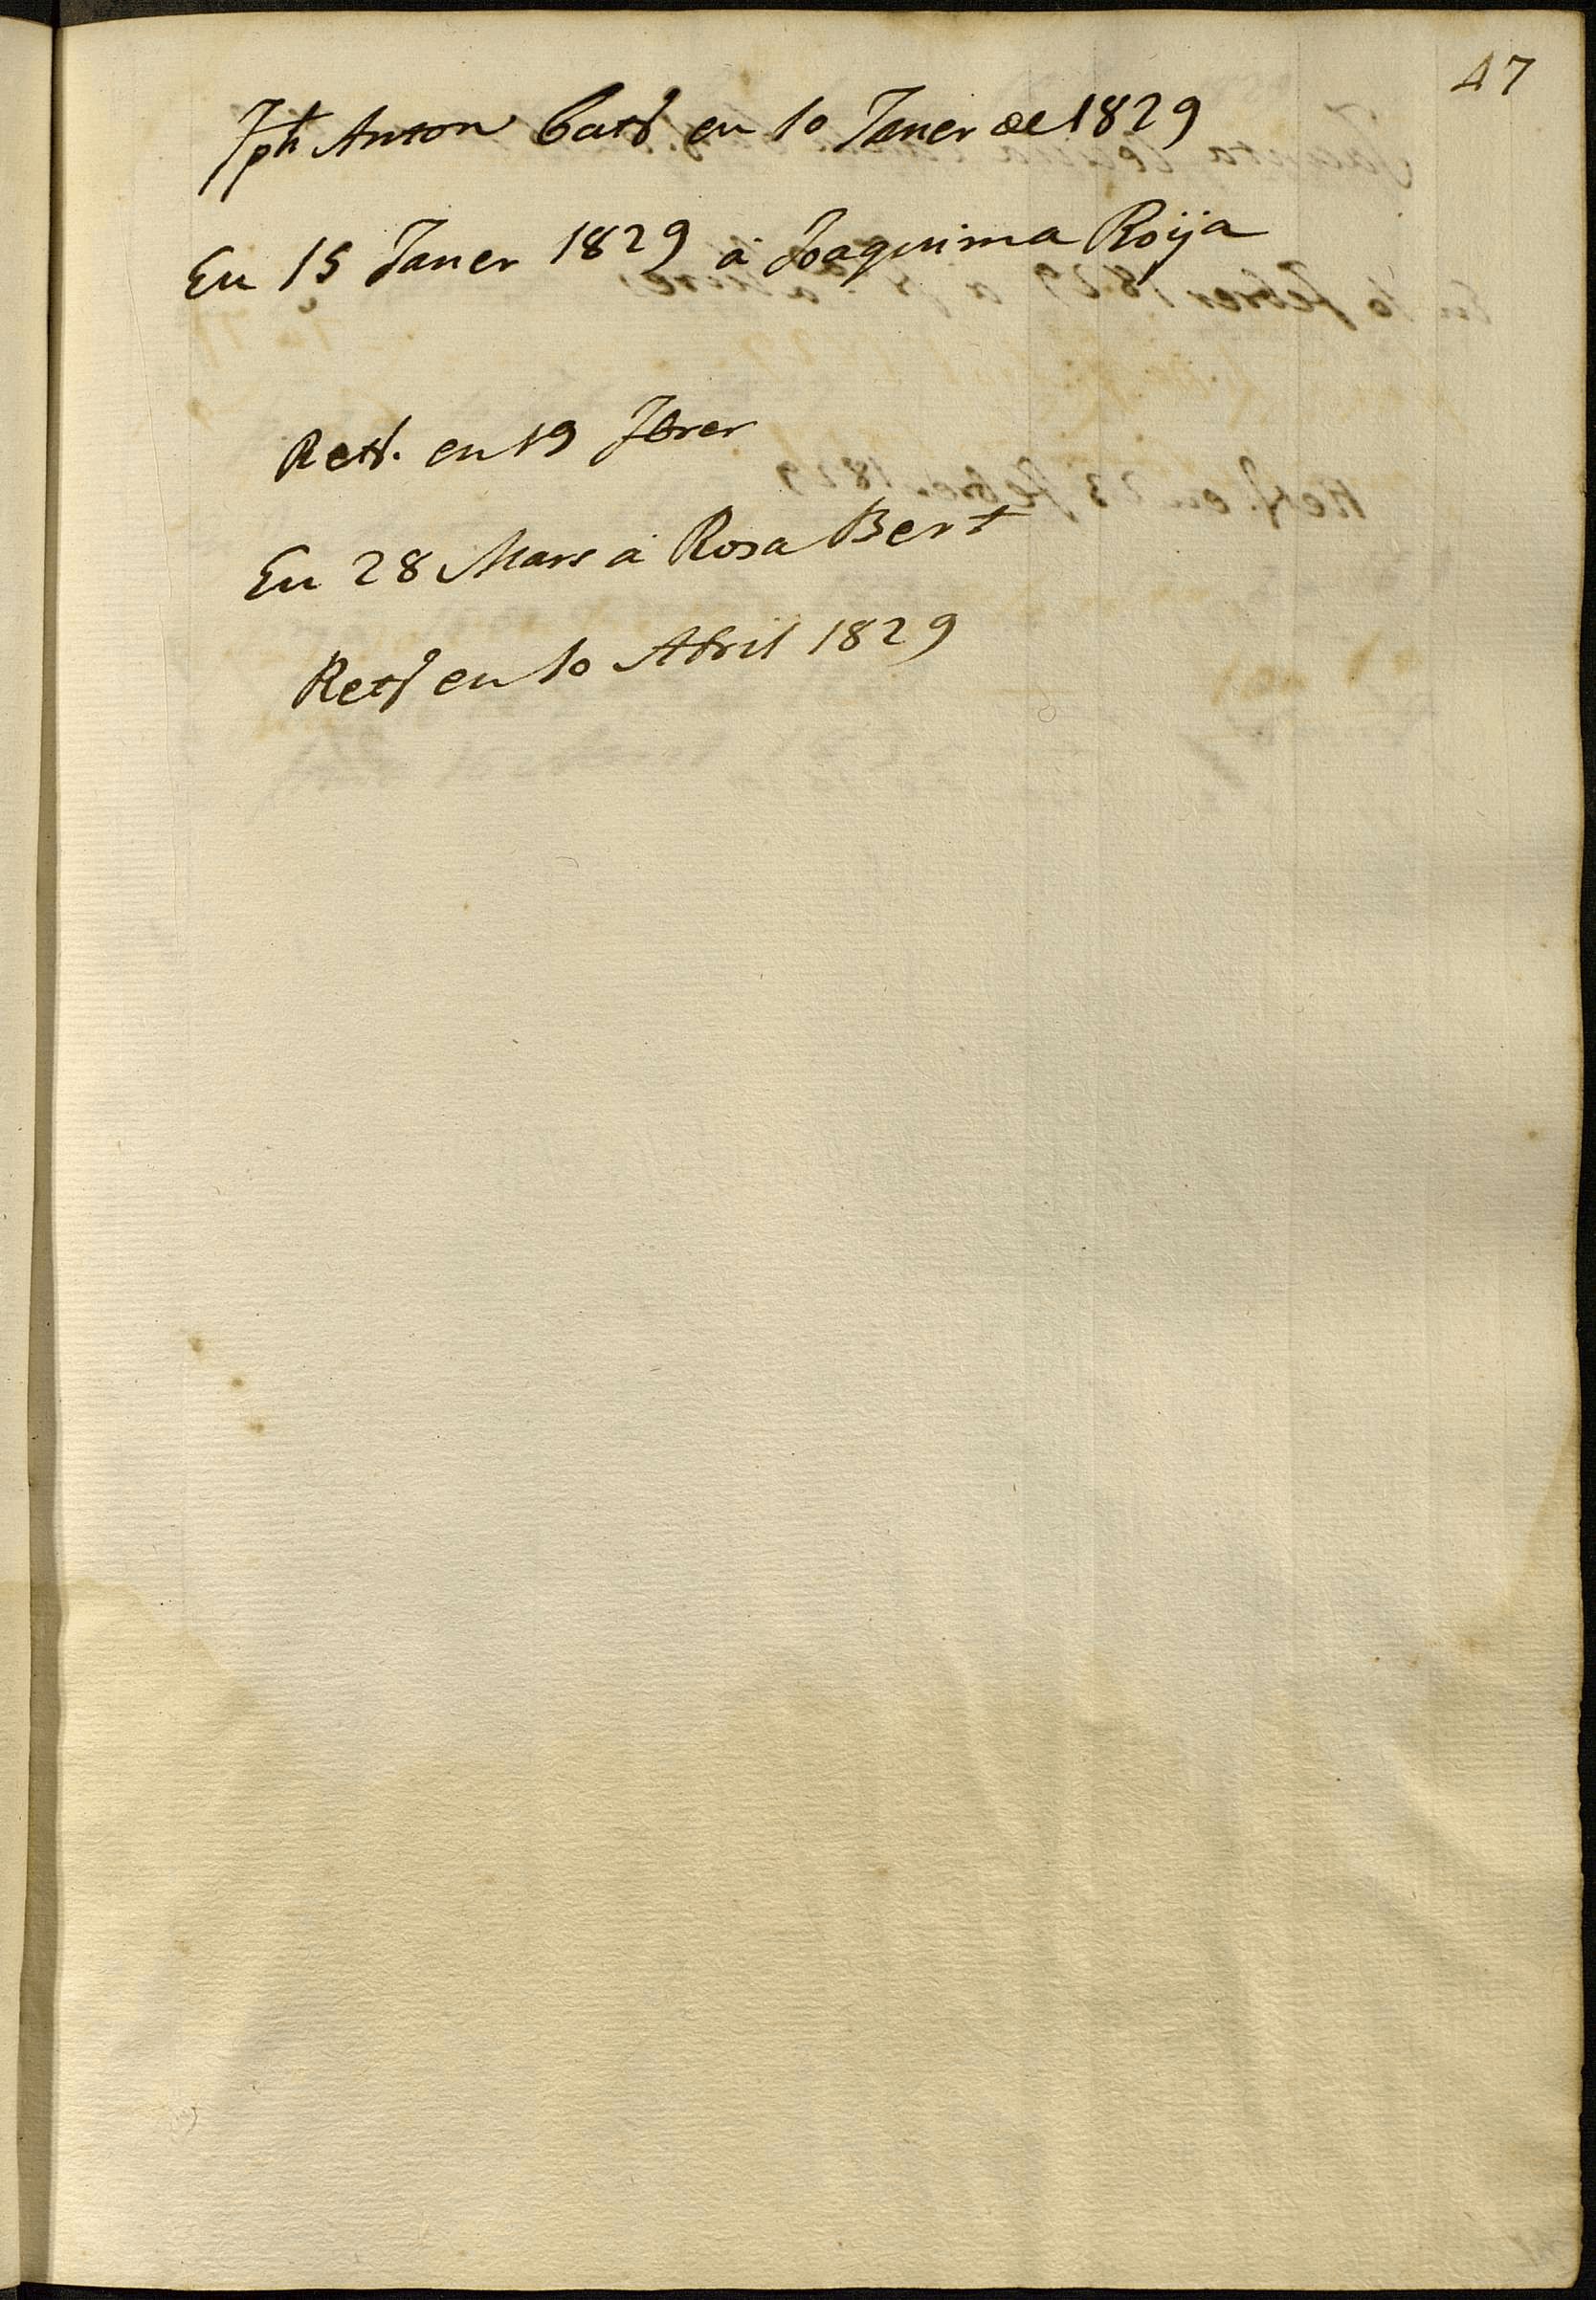 47
Jph Anton Batt en 10 Janer de 1829
En 15 Janer 1829 à Joaquima Roija
Rett. en 19 Fbrer
En 28 Mars à Rosa Bert
Rett en 10 Abril 1829